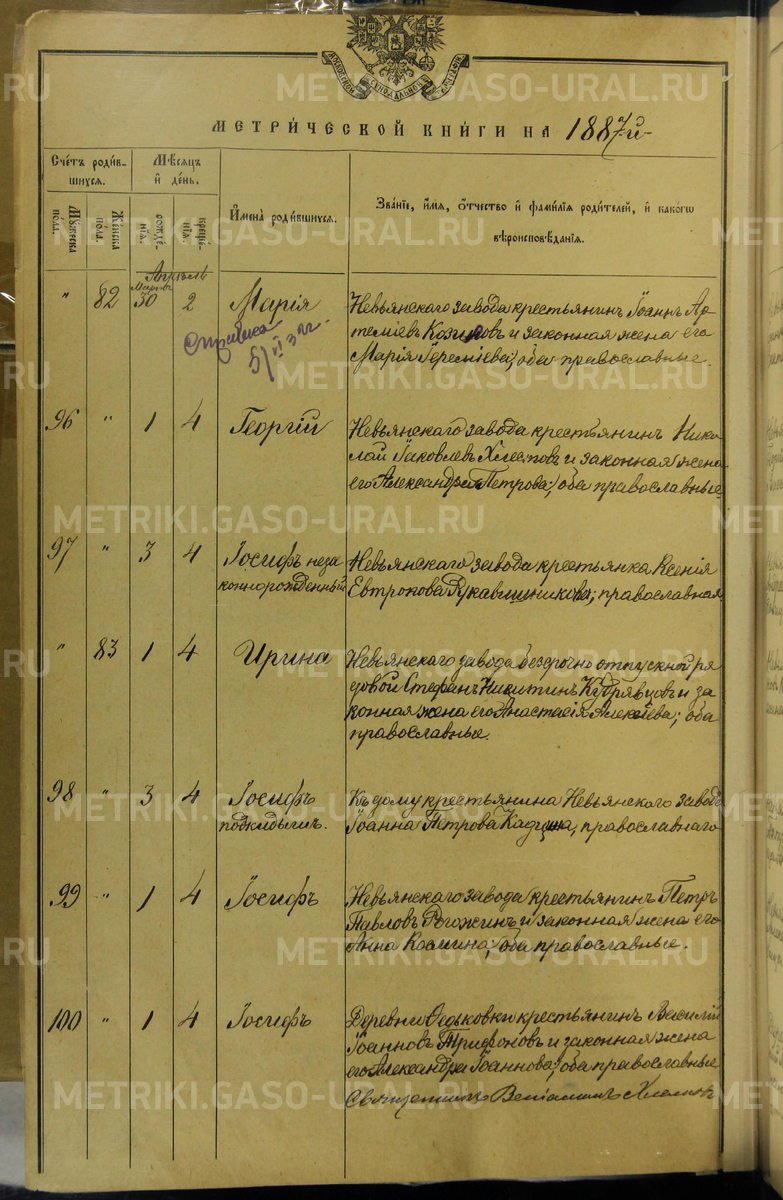 МЕТРИ́ЧЕСКОЙ КНИ́ГИ НА 1887-й-
Счéтъ роди́в-
шихся.
Мѣ́сяцъ
и҆ де́нь.
И҆мена̀ роди́вшихся.
Зва́нїе, и҆́мя, ѻ҆́тчество и҆ фами́лїя роди́телей, и҆ како́гѡ
вѣроисповѣ́данїя.
Му́жеска
по́ла.
Же́нска
по́ла.
рожде́-
нїя.
креще́-
нїя.
Апрѣль
Мартъ
" 82 30 2 Марія Невьянскаго завода крестьянинъ Іоаннъ Ар-
темиевъ и законная жена его
Марія Іереміева, оба православные.
Справка
96 " 1 4 Георгій Невьянскаго завода крестьянинъ Нико-
лай Іаковлевъ и законная жена
его Александра Петрова; оба православные.
97 " 3 4 Іосифъ неза Невьянскаго завода крестьянка Ксенія
коннорожденный Евтропова Рукавишникова; православная
" 83 1 4 Ирина Невьянскаго завода безсрочно отпускной ря
довой Стефанъ Никитинъ Кудрявцовъ и за
конная жена его Анастасія Алексѣева; оба
православные.
98 " 3 4 Іосифъ Къ дому крестьянина Невьянскаго завода
подкидышъ. Іоанна Петрова православнаго
99 " 1 4 Іосифъ Невьянскаго завода крестьянинъ Петръ
Павловъ Рогожинъ и законная жена его
Анна Козмина; оба православные.
100 " 1 4 Іосифъ Деревни Ѳедьковки крестьянинъ Василій
Іоанновъ Трифоновъ и законная жена
его Александра Іоаннова; оба православные
Священникъ Веніаминъ
METRIKI.GASO-URAL.RU